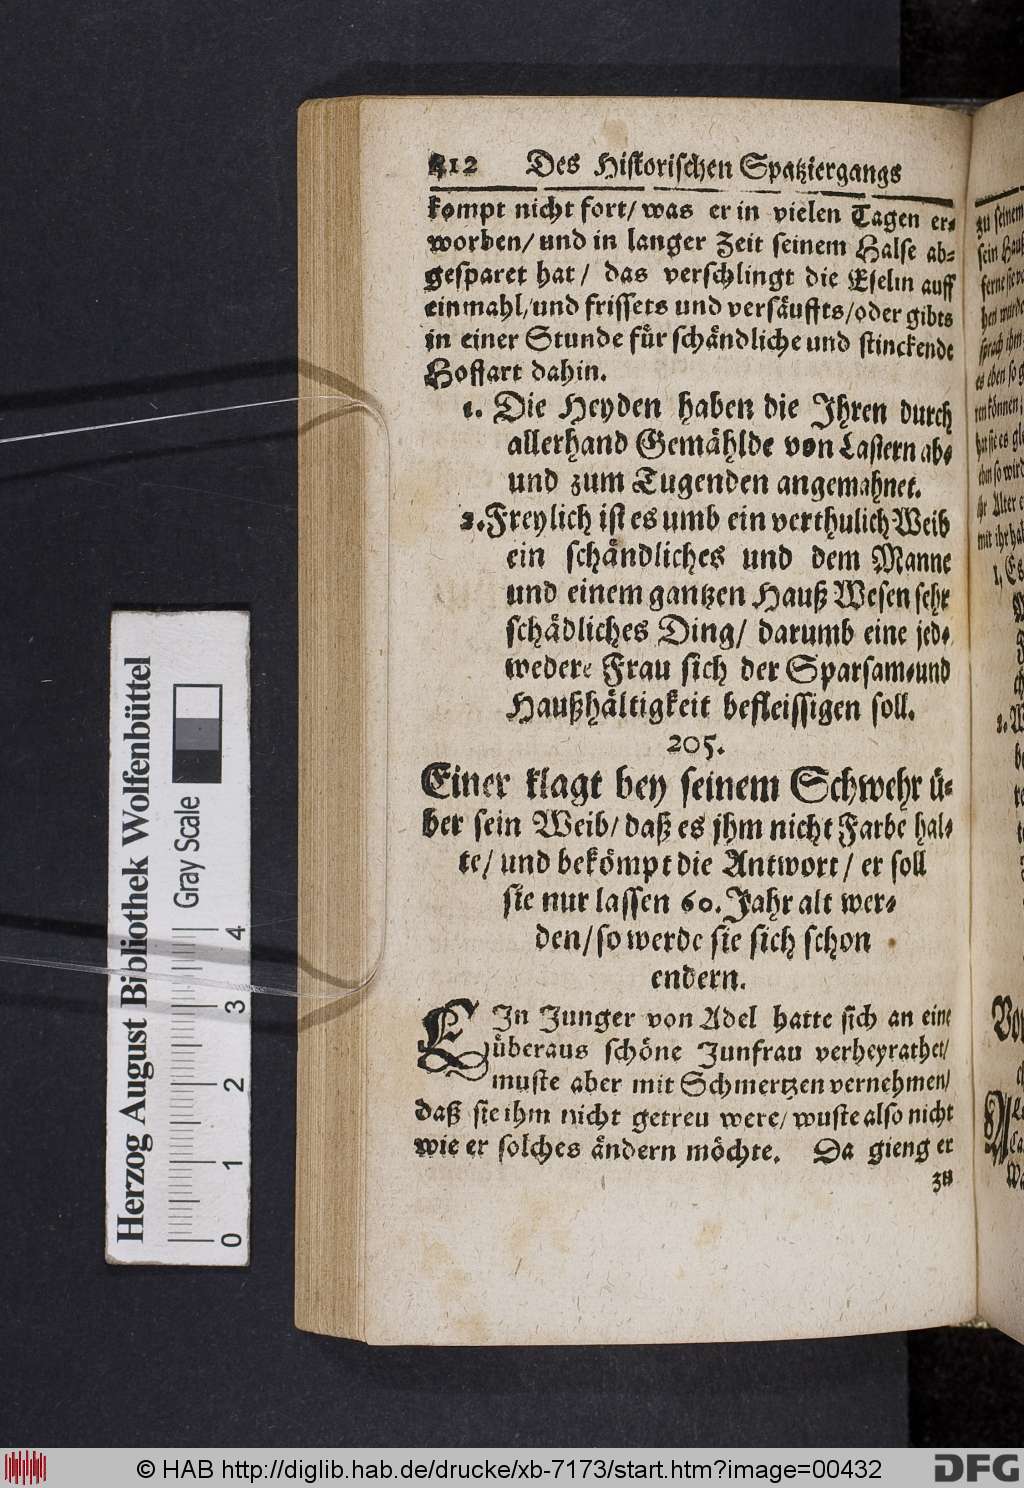 412 Des Historischen Spatziergangs
kompt nicht fort/ was er in vielen Tagen er-
worben/ und in langer Zeit seinem Halse ab-
gesparet hat/ das verschlingt die Eselin auff
einmahl/ und frissets und versäuffts/ oder gibts
in einer Stunde für schändliche und stinckende
Hoffart dahin.
1. Die Heyden haben die Ihren durch
allerhand Gemählde von Lastern ab-
und zum Tugenden angemahnet.
2. Freylich ist es umb ein verthulich Weib
ein schändliches und dem Manne
und einem gantzen Hauß Wesen sehr
schädliches Ding/ darumb eine jed-
wedere Frau sich der Sparsam- und
Haußhältigkeit befleissigen soll.
205.
Einer klagt bey seinem Schwehr ü-
ber sein Weib/ daß es jhm nicht Farbe hal-
te/ und bekömpt die Antwort/ er soll
sie nur lassen 60. Jahr alt wer-
den/ so werde sie sich schon
endern.
EIn Junger von Adel hatte sich an eine
überaus schöne Junfrau verheyrathet/
muste aber mit Schmertzen vernehmen/
daß sie ihm nicht getreu were/ wuste also nicht
wie er solches ändern möchte. Da gieng er
zu
zu seinem
sein Hauß
ferne sie
ben wurde
sprach ihm
es eben so
ren können
hat sie es
ihr Alter
mit ihr
1. Es
2. W
Herzog August Bibliothek Wolfenbüttel
Gray Scale
0 1 2 3 4
© HAB http://diglib.hab.de/drucke/xb-7173/start.htm?image=00432
DFG